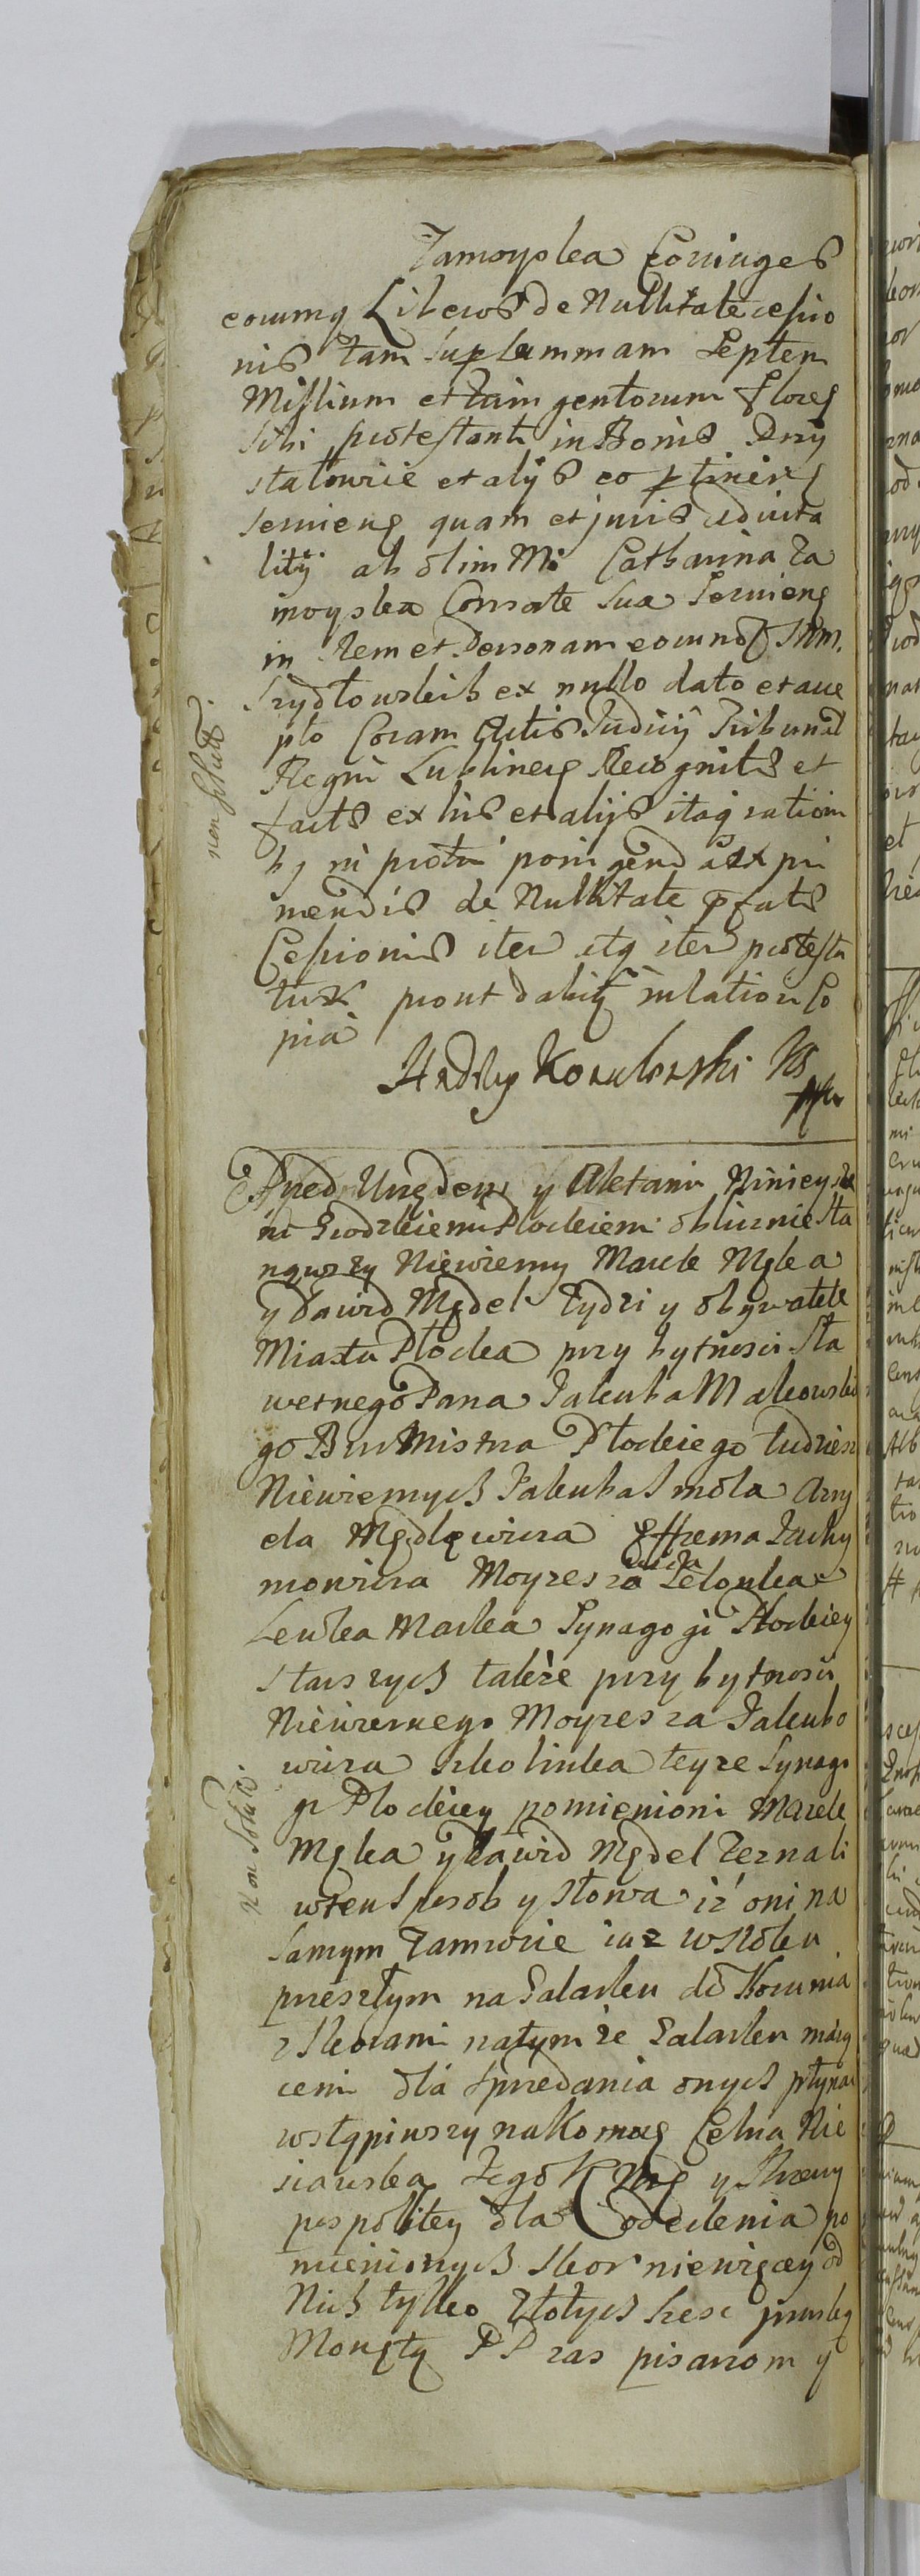 Zamoyska Coniuges
eorumq Liberos de Nullitate cessio
nis tam sup summam Septem
Millium et gentorum floren
sibi protestanti in Bonis Krzy
stalowice et alijs eo ptinen
servieng quam et juris advita
litij ab olim Mi Catharina Za
moyska Consorte sua servieng
in Rem et Personam eorund
Szydłowskich ex nullo dato et acce
pto Coram Actis Judicij Tribunal
Regni Lublinens Recognits et
facts ex his et alijs itaq ration
bq ni priori
mendis de Nullitate pfats
Cessionis iter itq iter protesta
tur prout dabitq inlation Co
pia
Kozubowski
non solutt.
Przed Urzędem y Aktami Ninieysze
mi Grodzkiemi Płockiemi obliznie sta
nąwszy Niewierny Marek Męka
y Dawid Mędel Żydzi y obywatele
Miasta Płocka przy bytnosci Sła
wetnego Pana Jakuba Makowskie
go Burmistrza Płockiego tudziesz
Niewiernych Jakuba Smola
ela Mędlewicza Effrema Jachy
mowicza Moyzesza
Lewka Maska Synagogi Płockiey
starszych takze przy bytnosci
Niewiernego Moyzesza Jakubo
wicza Szkolnika teyze Synago
gi Płockiey pomienioni Marek
Męka y Dawid Mędel zeznali
wten sposob y słowa iz oni na
samym zamroie iuz w Roku
przeszłym na Galarku do Torunia
z skorami natymze Galarku mairą
cemi dla sprzedania onych płynac
wstąpiwszy na Komorę Celna Nie
siawską Jego K Mc y Rzeczy
pospolitey dla odcclenia po
mienionych skor niewięcey od
Nich tylko złotych szesc pruską
Monętą PP zas pisarzom y
Non Solutt.